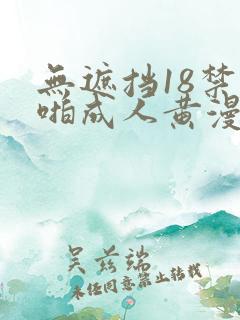 無遮挡18禁
啪成人黄漫
吴兹端
未经同意禁止转载